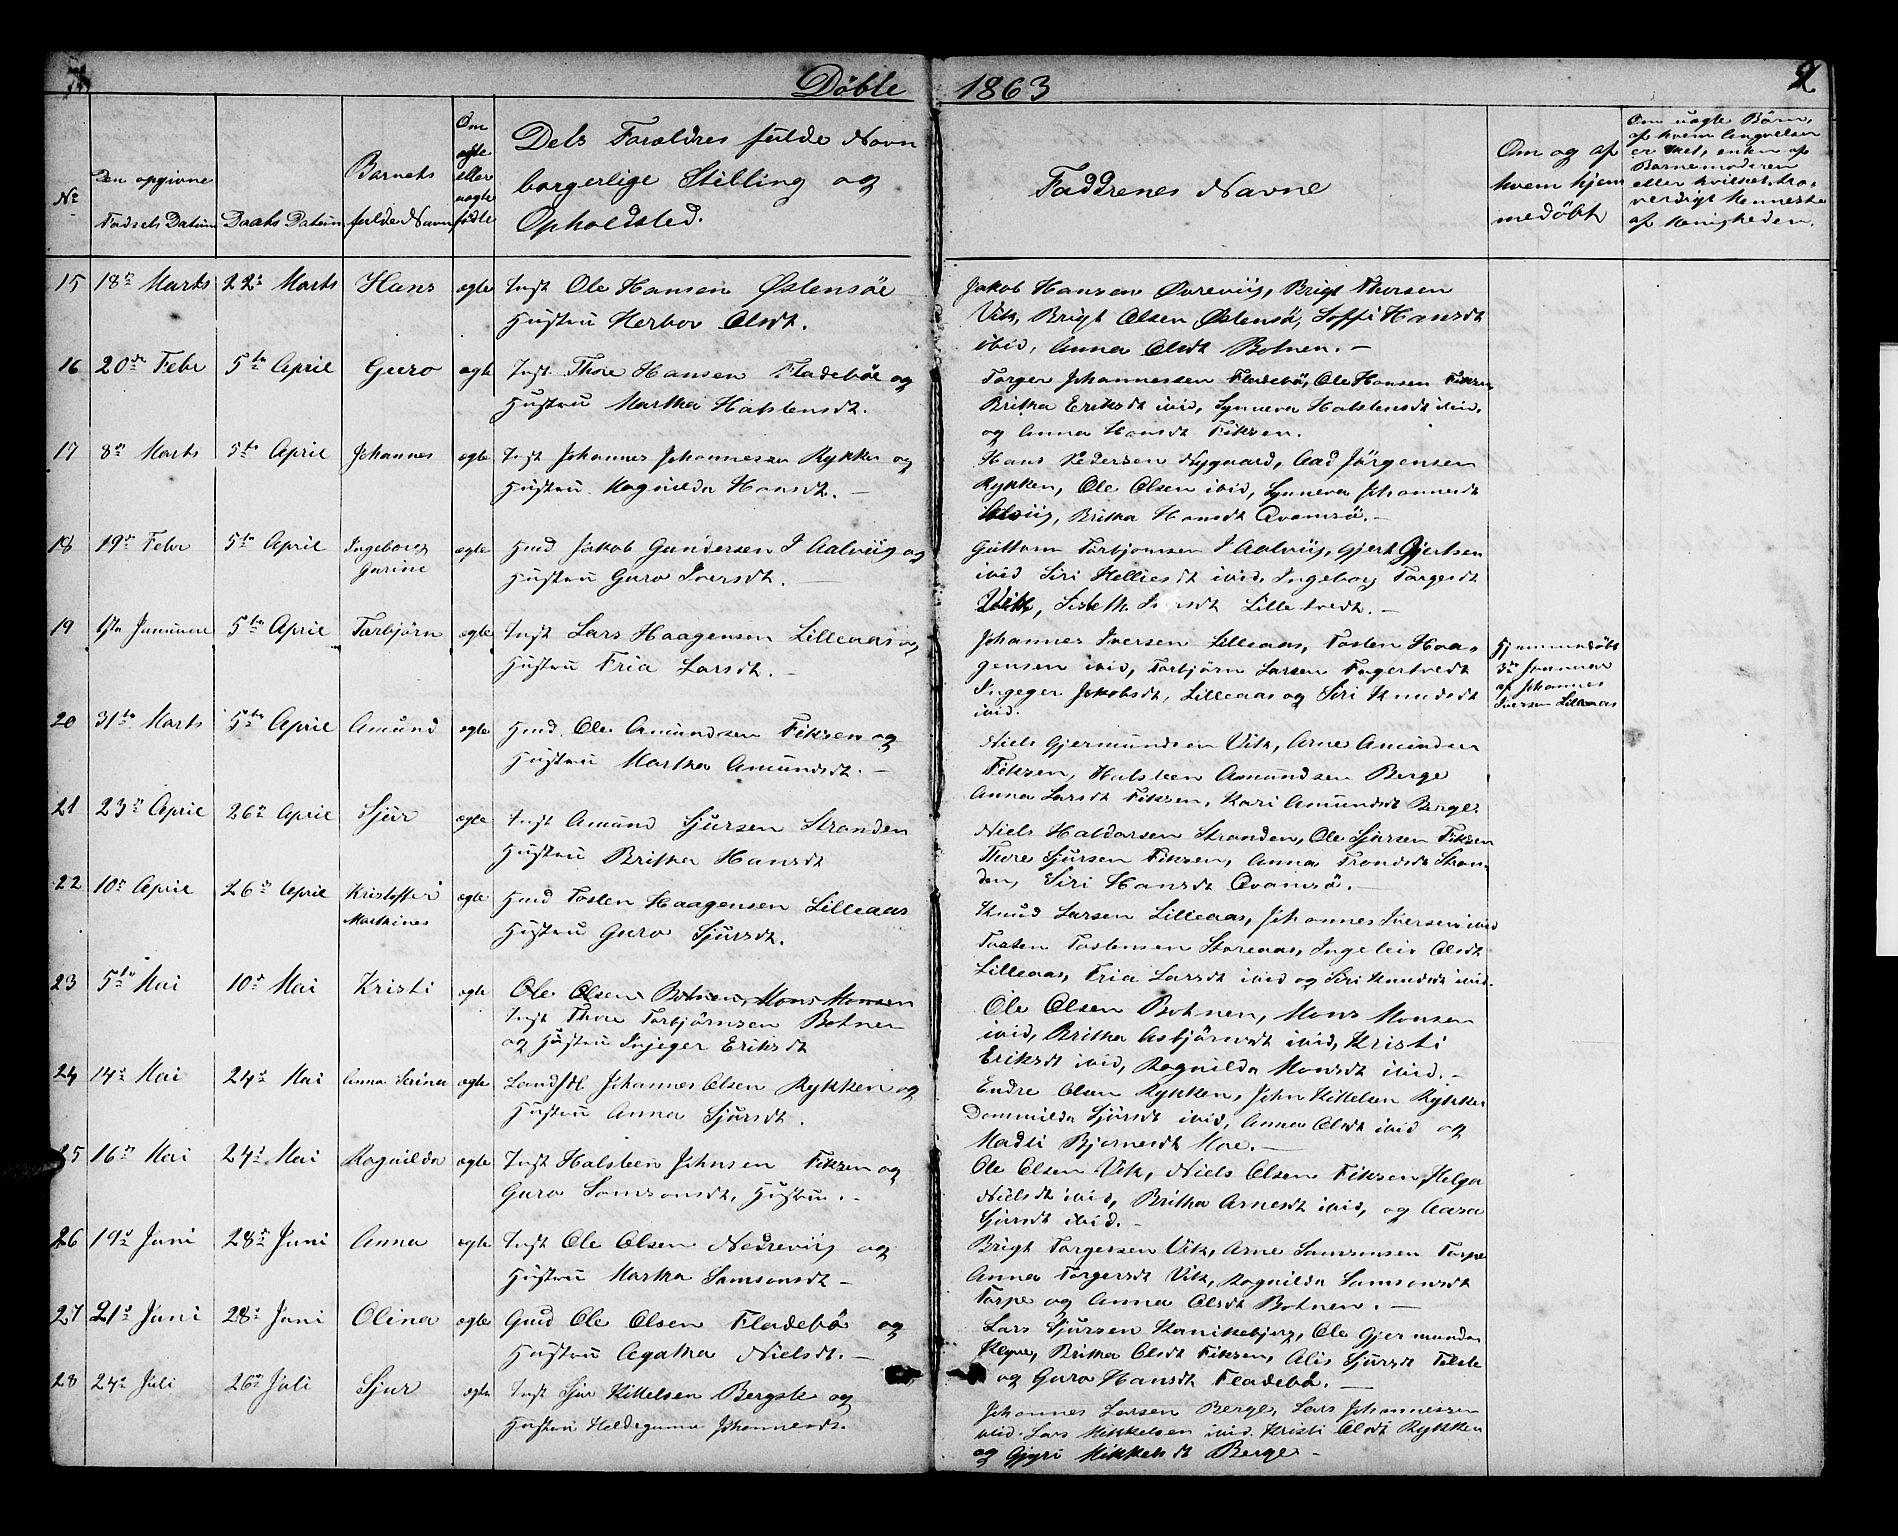 Döbte 1863
2
No
Den opgivne Fødsels Datum
Daabs Datum
Barnets fulde Navn
Om ægte eller uægte fødte
Dets Forældres fulde Navn borgerlige Stilling og Opholdsted.
Faddrenes Navne
Om og af hvem hjemmedöbt
Om uægte Børn, af hvem Angivelsen er skeet, enten af Barnemoderen eller hvilket troværdigt Menneske af Menigheden.
15 18de Marts 22de Marts Hans ægte Inst Ole Hansen Østensöe
Hustru Herbor Olsdt.
Jakob Hansen Øvreviig, Brigt Thorsen
Vik, Brigt Olsen Östensö, Soffi Hansdt
ibid, Anna Olsdt Botnen. —
16 20de Febr 5te April Guro ægte Inst. Thore Hansen Fladeböe og
Hustru Martha Halstensdt.
Torger Johannessen Fladebö, Ole Hansen Fiksen
Britha Eriksdt ibid, Synneva Halstensdt ibid,
og Anna Hansdt Fiksen.
17 8de Marts 5te April Johannes ægte Inst Johannes Johannessen Rykken og
Hustru Ragnilda Hansdt. —
Hans Pedersen Nygaard, Aad Jörgensen
Rykken, Ole Olsen ibid, Synneva Johannesdt
Britha Hansdt Qvamsö. —
18 19de Febr 5te April Ingeborg Gurine ægte Hmd Jakob Gundersen I Aalviig og
Hustru Guro Iversdt. —
Guttorm Torbjornsen I Aalviig, Gjert Gjertsen
ibid Siri Helliesdt ibid, Ingeborg Torgersdt
Vik, Sisbeth Iversdt Lilletvedt. —
19 1ste Januar 5te April Torbjörn ægte Inst Lars Haagensen Lilleaas og
Hustru Fria Larsdt. —
Johannes Iversen Lilleaas, Tosten Haa-
gensen ibid, Torbjörn Larsen Fagertvedt
Ingeger Jakobsdt, Lilleaas og Siri Knudsdt
ibid.
Hjemmedöbt
3de Januar
af Johannes
Iversen Lilleaas
20 31te Marts 5te April Amund ægte Hmd. Ole Amundsen Fiksen og
Hustru Martha Amundsdt. —
Niels Gjermundsen Vik, Arne Amundsen
Fiksen, Halsteen Amundsen Berge
Anna Larsdt Fiksen, Kari Amundsdt Berge.
21 23de April 26de April Sjur ægte Inst Amund Sjursen Stranden
Hustru Britha Hansdt
Niels Haldorsen Stranden, Ole Sjursen Fiksen
Thore Sjursen Fiksen, Anna Trondsdt Stran-
den, Siri Hansdt Qvamsö. —
22 10de April 26de April Kristoffer Mathines ægte Hmd Tosten Haagensen Lilleaas
Hustru Guro Sjursdt.
Knud Larsen Lilleaas, Johannes Iversen ibid
Tosten Tostensen Storeaas, Ingeleiv Olsdt
Lilleaas, Fria Larsdt ibid og Siri Knudsdt ibid.
23 5te Mai 10de Mai Kristi ægte Ole Olsen Botnen, Mons Monsen
Inst Thore Torbjörnsen Botnen
og Hustru Injeger Eriksdt
Ole Olsen Botnen, Mons Monsen
ibid, Britha Asbjörnsdt ibid, Kristi
Eriksdt ibid, Ragnilda Monsdt ibid. —
24 14de Mai 24de Mai Anna Serina ægte Landhdl. Johannes Olsen Rykken og
Hustru Anna Sjursdt.
Endre Olsen Rykken, John Kittelsen Rykken
Dommilda Sjursdt ibid, Anna Olsdt ibid og
Madli Bjornesdt Moe. —
25 16de Mai 24de Mai Ragnilda ægte Inst Halsteen Johnsen Fiksen og
Guro Samsonsdt, Hustru. —
Ole Olsen Vik, Niels Olsen Fiksen, Helga
Nielsdt ibid, Britha Arnesdt ibid, og Aasa
Sjursdt ibid. —
26 19de Juni 28de Juni Anna ægte Inst Ole Olsen Nedreviig og
Hustru Martha Samsonsdt —
Brigt Torgersen Vik, Arne Samsonsen Torpe
Anna Torgersdt Vik, Ragnilda Samsonsdt
Torpe og Anna Olsdt Botnen. —
27 21de Juni 28de Juni Olina ægte Gmd Ole Olsen Fladebö og
Hustru Agatha Nielsdt. —
Lars Sjursen Kanikebjerg, Ole Gjermundsen
Britha Olsdt Fiksen, Alis Sjursdt
og Guro Hansdt Fladebö. —
28 24de Juli 26de Juli Sjur ægte Inst Sjur Kittelsen Bergste og
Hustru Heldegunna Johannesdt.
Johannes Larsen Berge, Lars Johannessen
ibid. Lars Mikkelsen ibid. Kristi Olsdt Rykken
og Gjyri Mikkelsdt Berge —